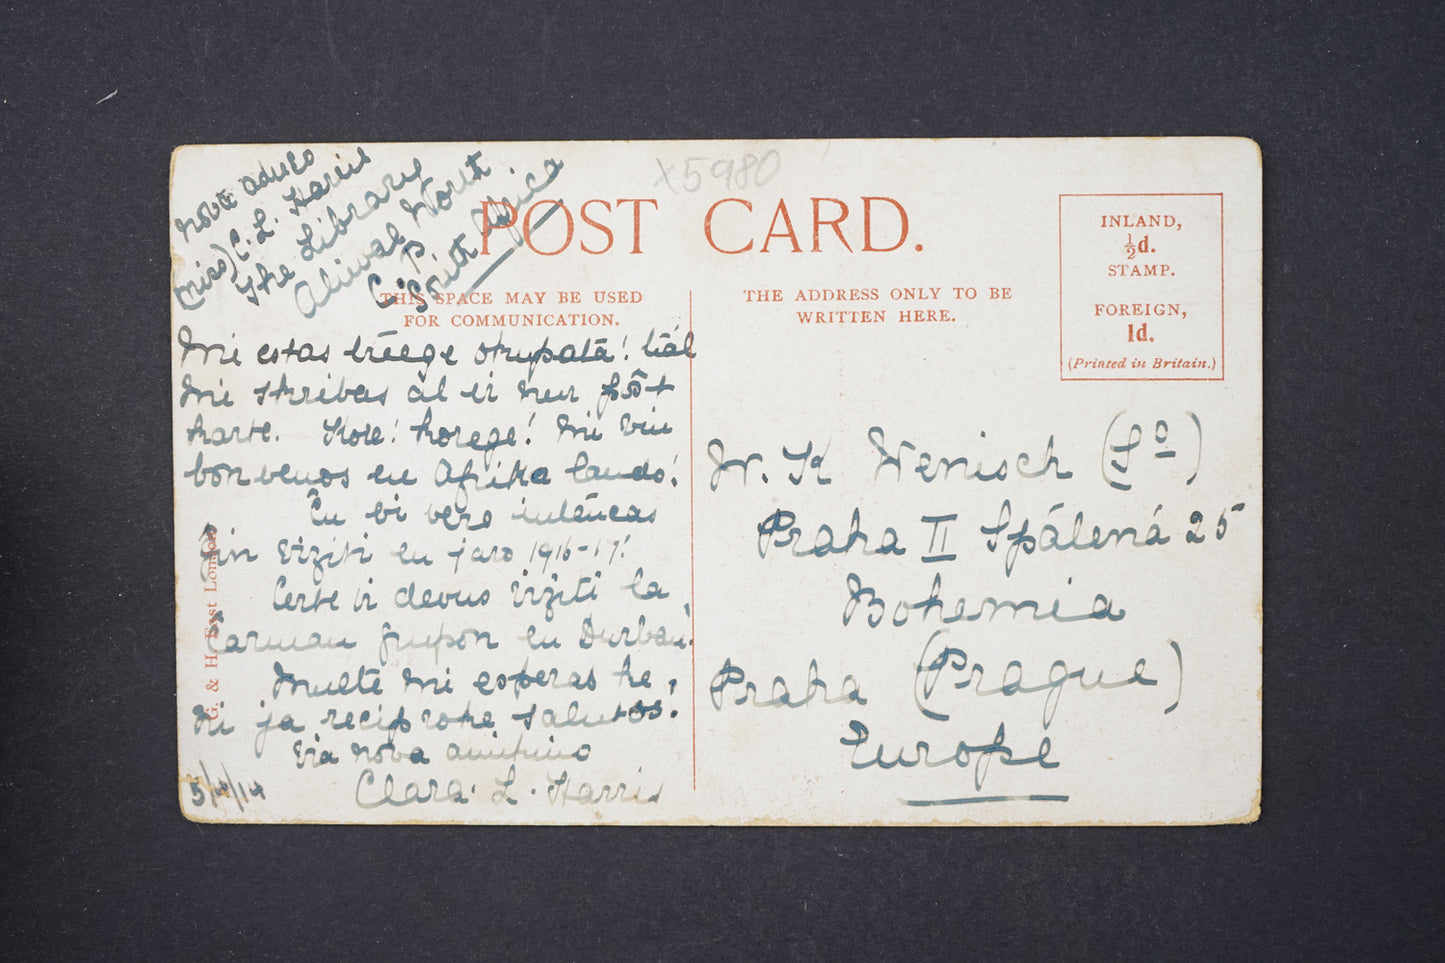 x5980
nova adreso
(miss) C. L. Harris
The Library
Aliwal North
C. P.
South Africa
POST CARD.
THIS SPACE MAY BE USED
FOR COMMUNICATION.
THE ADDRESS ONLY TO BE
WRITTEN HERE.
INLAND,
½d.
STAMP.
FOREIGN,
1d.
(Printed in Britain.)
Mi estas treege okupata! tial
Mi skribas al vi nur post
karte.
korege! Mi
bonvenos en Afrika lando!
Ĉu vi vere intencas
ĝin viziti en jaro 1916-17!
Certe vi devus viziti la
ĉarman en Durban.
Multe mi esperas ke,
ni ja reciproke salutos.
Via nova amikino
Clara. L. Harris
5/4/14
G. & H. East London
W. K Wenisch (Sº)
Praha II Spálená 25
Bohemia
Praha (Prague)
Europe